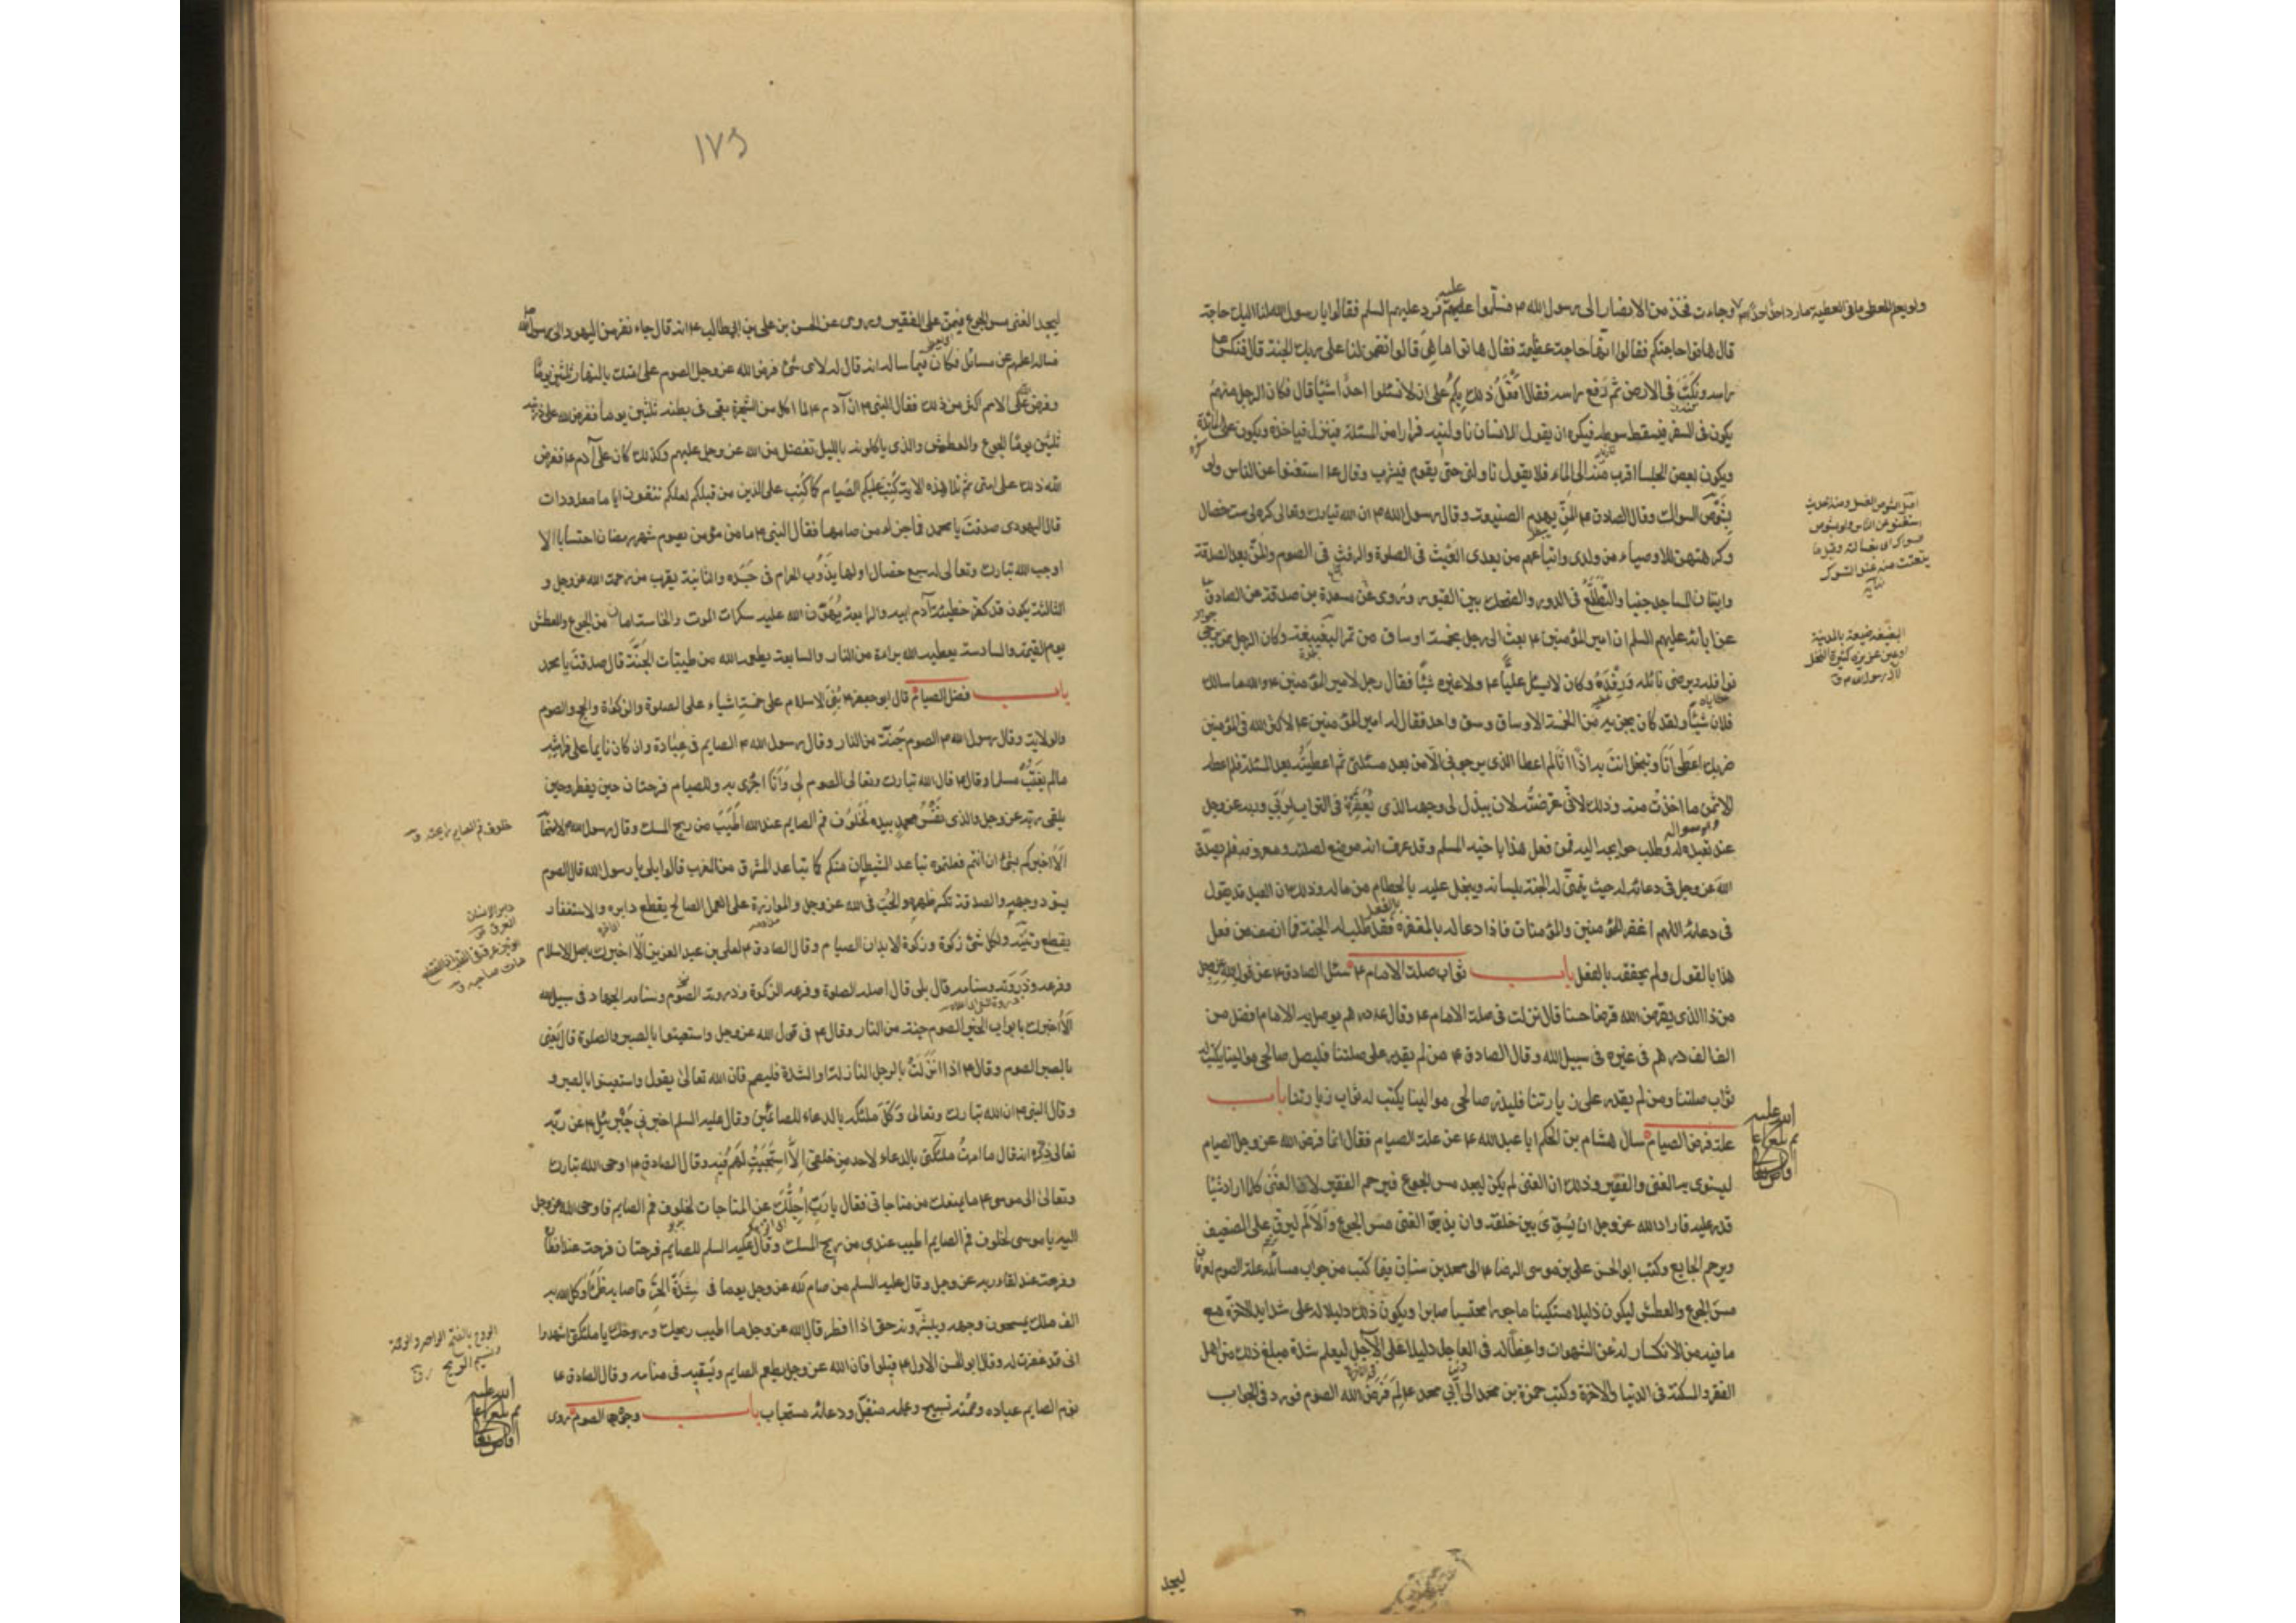 ولو يعلم المعطى ما فى العطية ما رد احدا احدا
وجاءت فخذ من الانصار الى رسول الله ص فسلموا عليه فرد عليهم السلم فقالوا يا رسول الله لنا اليك حاجة
قال هاتوا حاجتكم فقالوا انها حاجة عظيمة فقال هاتوا ما هى قالوا تضمن لنا على ربك الجنة قال فنكس
راسه ونكت فى الارض ثم رفع راسه فقال افعل ذلك بكم على ان لا تسئلوا احدا شيئا قال فكان الرجل منهم
يكون فى السفر فيسقط سوطه فيكره ان يقول لانسان ناولنيه فرارا من المسئلة فينزل فياخذه ويكون على المائدة
ويكون بعض الجلساء اقرب منه الى الماء فلا يقول ناولنى حتى يقوم فيشرب وقال ع استغنوا عن الناس ولو
بشوص السواك وقال الصادق ع المن يهدم الصنيعة وقال رسول الله ص ان الله تبارك وتعالى كره لى ست خصال
وكرهتهن للاوصياء من ولدى واتباعهم من بعدى العبث فى الصلوة والرفث فى الصوم والمن بعد الصدقة
واتيان المساجد جنبا والتطلع فى الدور والضحك بين القبور وروى عن مسعدة بن صدقة عن الصادق
عن ابائه عليهم السلم ان امير المؤمنين ع بعث الى رجل بخمسة اوساق من تمر البغيبغة وكان الرجل ممن يرجى
نوافله ويرضى نائله ورفده وكان لا يسئل عليا ع ولا غيره شيئا فقال رجل لامير المؤمنين ع والله ما سالك
فلان شيئا ولقد كان يجزيه من الخمسة الاوساق وسق واحد فقال له امير المؤمنين ع لا كثر الله فى المؤمنين
ضربك اعطى انا وتبخل انت به اذا انا لم اعط الذى يرجونى الا من بعد مسئلتى ثم اعطيته بعد المسئلة فلم اعطه
الا ثمن ما اخذت منه وذلك لانى عرضته لان يبذل لى وجهه الذى يعفره فى التراب لربى وربه عز وجل
عند تعبده له وطلب حوايجه اليه فمن فعل هذا باخيه المسلم وقد عرف انه موضع لصلته ومعروفه فلم يصدق
الله عز وجل فى دعائه له حيث يتمنى له الجنة بلسانه ويبخل عليه بالحطام من ماله وذلك ان العبد قد يقول
فى دعائه اللهم اغفر للمؤمنين والمؤمنات فاذا دعا له بالمغفرة فقد طلب له الجنة فما انصف من فعل
هذا بالقول ولم يحققه بالفعل باب ثواب صلة الامام ع سئل الصادق ع عن قول الله عز وجل
من ذا الذى يقرض الله قرضا حسنا قال نزلت فى صلة الامام ع وقال ع درهم يوصل به الامام افضل من
الف الف درهم فى غيره فى سبيل الله وقال الصادق ع من لم يقدر على صلتنا فليصل صالحى موالينا يكتب له
ثواب صلتنا ومن لم يقدر على زيارتنا فليزر صالحى موالينا يكتب له ثواب زيارتنا باب
علة فرض الصيام سال هشام بن الحكم ابا عبد الله ع عن علة الصيام فقال انما فرض الله عز وجل الصيام
ليستوى به الغنى والفقير وذلك ان الغنى لم يكن ليجد مس الجوع فيرحم الفقير لان الغنى كلما اراد شيئا
قدر عليه فاراد الله عز وجل ان يسوى بين خلقه وان يذيق الغنى مس الجوع والالم ليرق على الضعيف
ويرحم الجايع وكتب ابو الحسن على بن موسى الرضا ع الى محمد بن سنان فيما كتب من جواب مسائله علة الصوم لعرفان
مس الجوع والعطش ليكون ذليلا مستكينا ماجورا محتسبا صابرا ويكون ذلك دليلا له على شدايد الاخرة مع
ما فيه من الانكسار له عن الشهوات واعظا له فى العاجل دليلا على الآجل ليعلم شدة مبلغ ذلك من اهل
الفقر والمسكنة فى الدنيا والاخرة وكتب حمزة بن محمد الى ابى محمد ع لم فرض الله الصوم فورد فى الجواب
اصل الشوص الغسل ومنه الحديث
استغنوا عن الناس ولو بشوص
سواك اى بغسالته وقيل بما
يتفتت منه عند التسوك
نهاية
البغيبغة ضيعة بالمدينة
او عين غزيرة كثيرة النخل
لآل رسول الله ص ق
ليجد
١٧٩
ليجد الغنى مس الجوع فيمن على الفقير وروى عن الحسن بن على بن ابيطالب ع انه قال جاء نفر من اليهود الى رسول الله
فساله اعلمهم عن مسائل فكان فيما ساله انه قال له لاى شئ فرض الله عز وجل الصوم على امتك بالنهار ثلثين يوما
وفرض على الامم اكثر من ذلك فقال النبى ص ان آدم ع لما اكل من الشجرة بقى فى بطنه ثلثين يوما ففرض الله على ذريته
ثلثين يوما الجوع والعطش والذى ياكلونه بالليل تفضل من الله عز وجل عليهم وكذلك كان على آدم ع ففرض
الله ذلك على امتى ثم تلا هذه الاية كتب عليكم الصيام كما كتب على الذين من قبلكم لعلكم تتقون اياما معدودات
قال اليهودى صدقت يا محمد فما جزاء من صامها فقال النبى ص ما من مؤمن يصوم شهر رمضان احتسابا الا
اوجب الله تبارك وتعالى له سبع خصال اولها يذوب الحرام فى جسده والثانية يقرب من رحمة الله عز وجل و
الثالثة يكون قد كفر خطيئة آدم ابيه والرابعة يهون الله عليه سكرات الموت والخامسة امان من الجوع والعطش
يوم القيمة والسادسة يعطيه الله براءة من النار والسابعة يطعمه الله من طيبات الجنة قال صدقت يا محمد
باب فضل الصيام قال ابو جعفر ع بنى الاسلام على خمسة اشياء على الصلوة والزكوة والحج والصوم
والولاية وقال رسول الله ص الصوم جنة من النار وقال رسول الله ص الصايم فى عبادة وان كان نايما على فراشه
ما لم يغتب مسلما وقال ع قال الله تبارك وتعالى الصوم لى وانا اجزى به وللصيام فرحتان حين يفطر وحين
يلقى ربه عز وجل والذى نفس محمد بيده لخلوف فم الصايم عند الله اطيب من ريح المسك وقال رسول الله ص لاصحابه
الا اخبركم بشئ ان انتم فعلتموه تباعد الشيطان منكم كما تباعد المشرق من المغرب قالوا بلى يا رسول الله قال الصوم
يسود وجهه والصدقة تكسر ظهره والحب فى الله عز وجل والموازرة على العمل الصالح يقطع دابره والاستغفار
يقطع وتينه ولكل شئ زكوة وزكوة الابدان الصيام وقال الصادق ع لعلى بن عبد العزيز الا اخبرك باصل الاسلام
وفرعه وذروته وسنامه قال بلى قال اصله الصلوة وفرعه الزكوة وذروته الصوم وسنامه الجهاد فى سبيل الله
الا اخبرك بابواب الخير الصوم جنة من النار وقال ع فى قول الله عز وجل واستعينوا بالصبر والصلوة قال يعنى
بالصبر الصوم وقال ع اذا نزلت بالرجل النازلة او الشدة فليصم فان الله تعالى يقول واستعينوا بالصبر و
وقال النبى ص ان الله تبارك وتعالى وكل ملئكة بالدعاء للصائمين وقال عليه السلم اخبرنى جبرئيل ع عن ربه
تعالى ذكره انه قال ما امرت ملئكتى بالدعاء لاحد من خلقى الا استجبت لهم فيه وقال الصادق ع اوحى الله تبارك
وتعالى الى موسى ع ما يمنعك من مناجاتى فقال يا رب اجلك عن المناجات لخلوف فم الصايم فاوحى الله عز وجل
اليه يا موسى لخلوف فم الصايم اطيب عندى من ريح المسك وقال عليه السلم للصايم فرحتان فرحة عند افطاره
وفرحة عند لقاء ربه عز وجل وقال عليه السلم من صام لله عز وجل يوما فى شدة الحر فاصابه ظمأ وكل الله به
الف ملك يمسحون وجهه ويبشرونه حتى اذا افطر قال الله عز وجل ما اطيب ريحك وروحك يا ملئكتى اشهدوا
انى قد غفرت له وقال ابو الحسن الاول ع قيلوا فان الله عز وجل يطعم الصايم ويسقيه فى منامه وقال الصادق ع
نوم الصايم عبادة وصمته تسبيح وعمله متقبل ودعائه مستجاب باب وجوه الصوم روى
خلوف فم الصايم رايحته ق